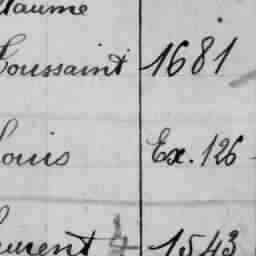 llaume
Toussaint 1681
Louis Ex. 126
Laurent 1543